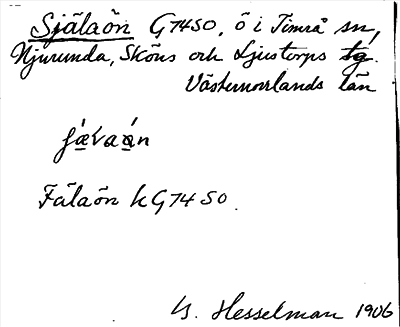 Själaön G7450, ö i Timrå sn,
Njurunda, Sköns och Ljustorps tg.
Västernorrlands län
Fälaön k G7450.
B. Hesselman 1906